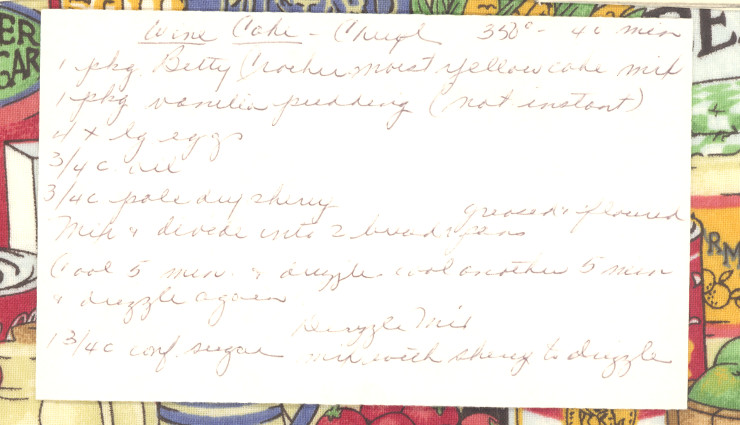 Wine Cake - Cheryl 350° - 40 min
1 pkg. Betty Crocker moist yellow cake mix
1 pkg vanilla pudding (not instant)
4 x lg eggs
3/4 c oil
3/4 c pale dry sherry
greased & floured
Mix & devide into 2 bread pans
Cool 5 min. & drizzle cool another 5 min
& drizzle again
Drizzle Mix
1 3/4 c conf. sugar mix with sherry to drizzle
ER
GAR
E
RM